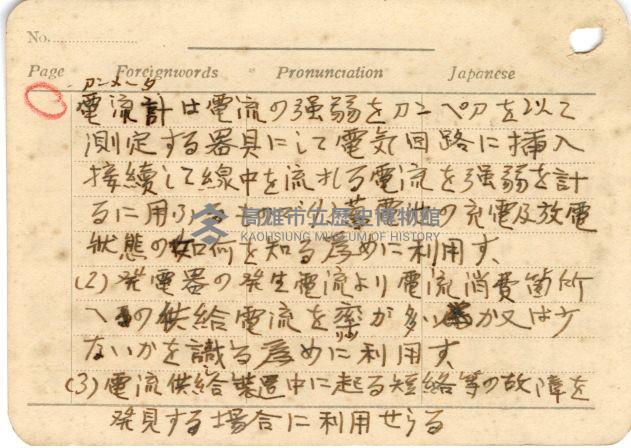 No.
Page Foreignwords Pronunciation Japanese
アンメータ
電流計は電流の强弱をアンペアを以て
測定する器具にして電気回路に挿入
接續して線中を流れる電流を强弱を計
るに用ふ (1) 蓄電池の充電及放電
高雄市立歷史博物館
KAOHSIUNG MUSEUM OF HISTORY
狀態の如何を知る為めに利用す、
(2) 発電器の発生電流より電流消費箇所
への供給電流を が多い か又は少
ないかを識る為めに利用す
(3) 電流供給裝置中に起る短絡等の故障を
発見する場合に利用せらる